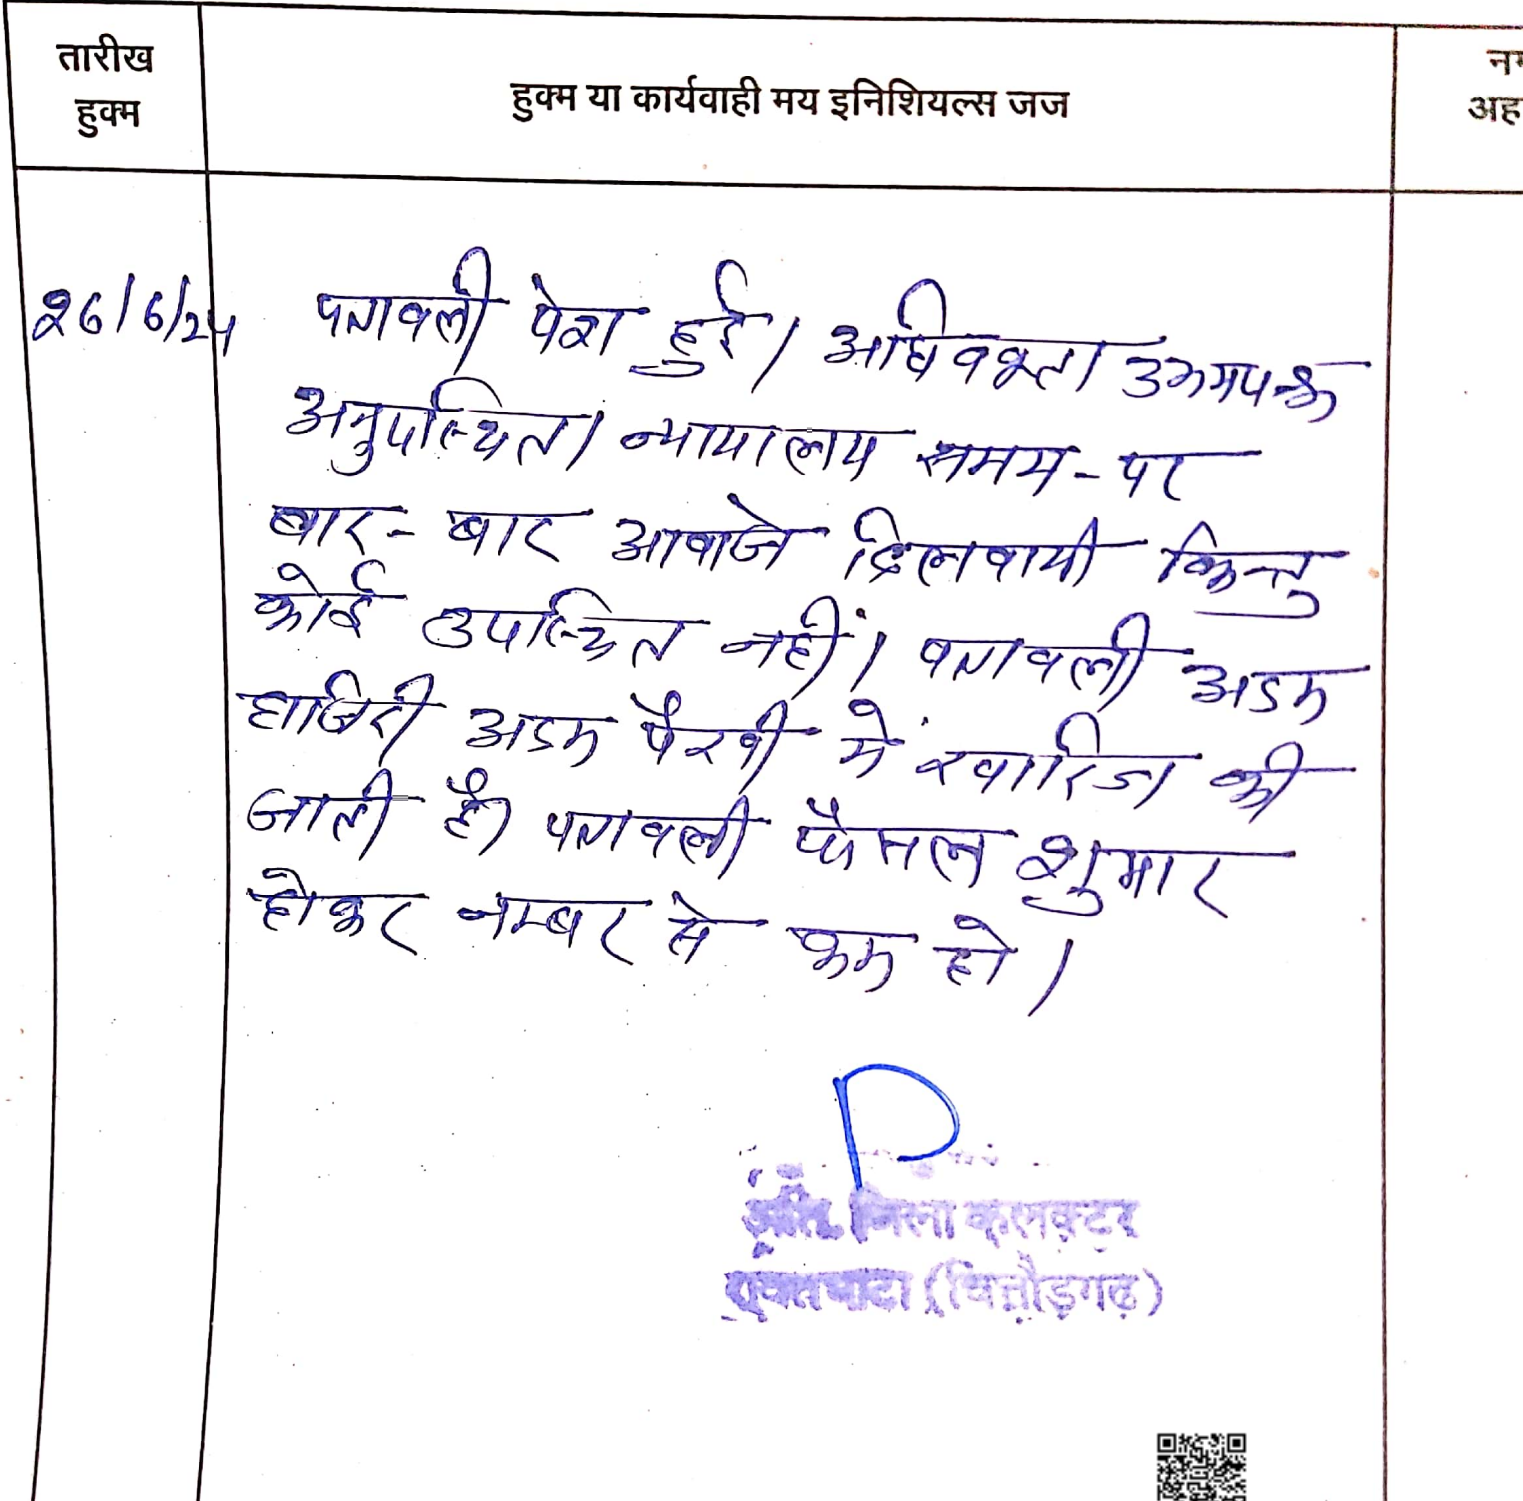 तारीख
हुक्म
हुक्म या कार्यवाही मय इनिशियल्स जज
अह
26/6/24 पत्रावली पेश हुई। अधिवक्ता उभयपक्ष
अनुपस्थित। न्यायालय समय-पर
बार-बार आवाजे दिलवायी किन्तु
कोई उपस्थित नहीं। पत्रावली अदम
हाजिरी अदम पैरवी में खारिज की
जाती है। पत्रावली फैसल शुमार
होकर नम्बर से कम हो।
अति. जिला कलक्टर
रावतभाटा (चित्तौड़गढ़)